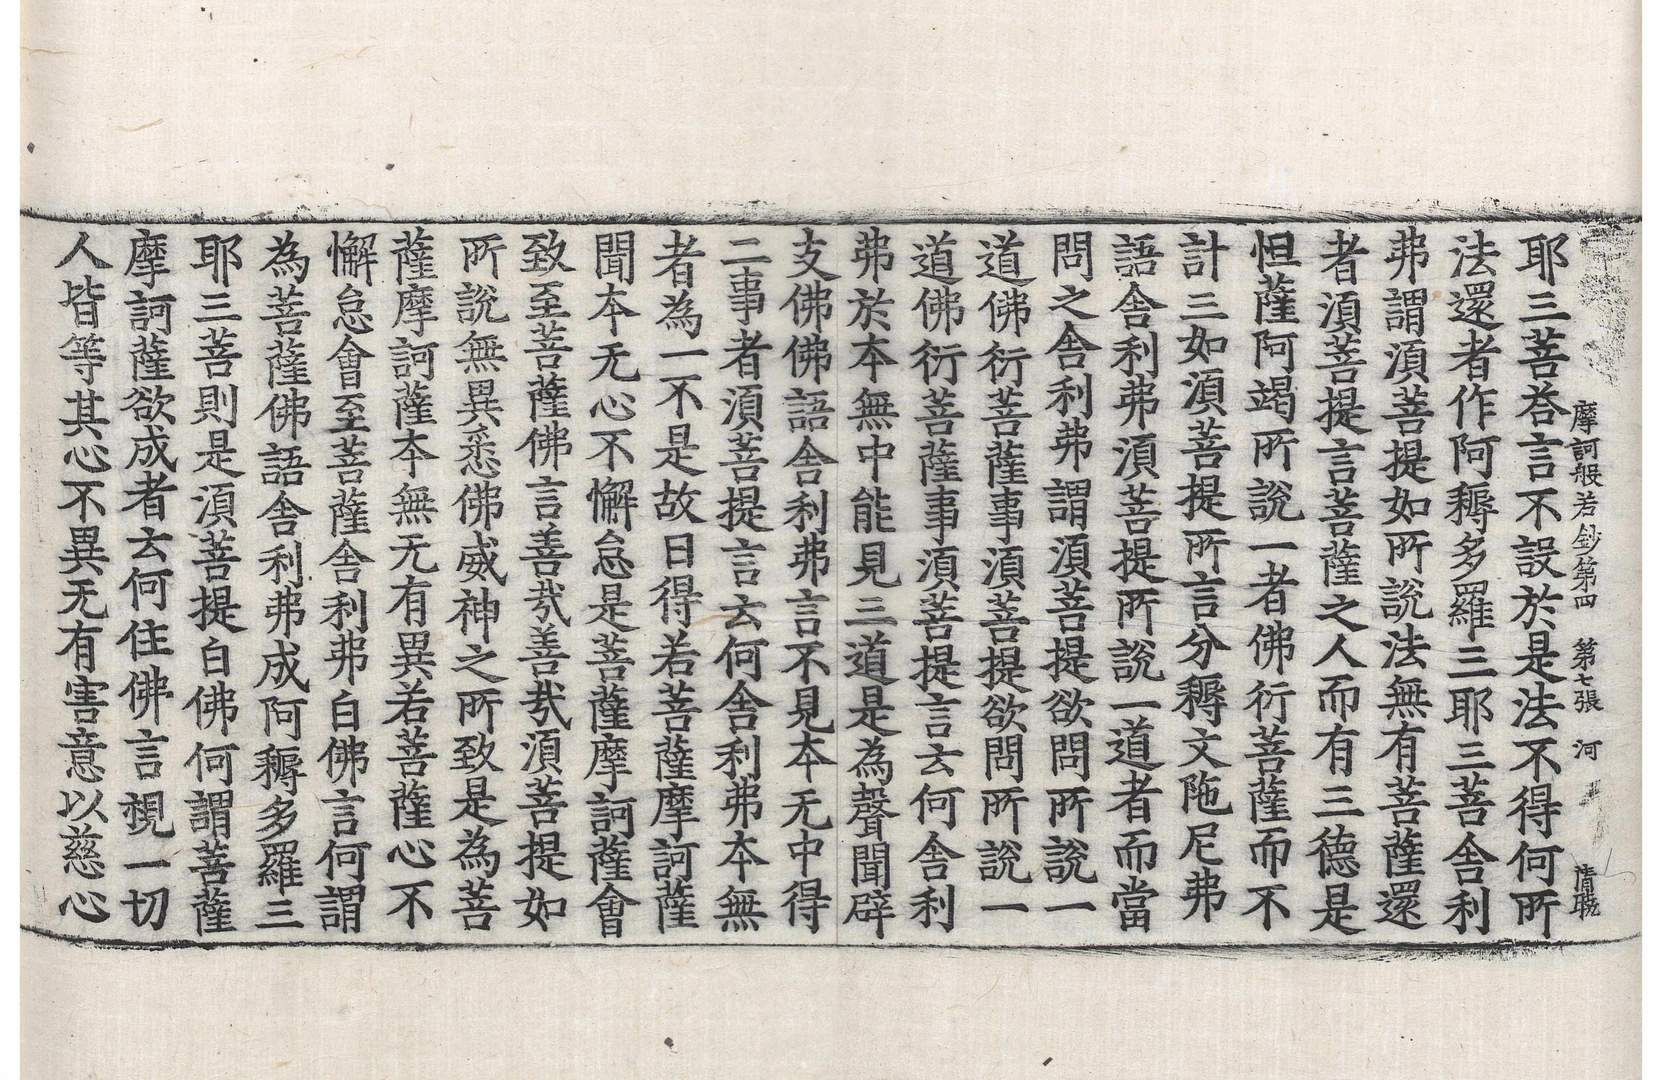 摩訶般若鈔第四　第七張　河
耶三菩荅言不設於是法不得何所
法還者作阿耨多羅三耶三菩舍利
弗謂湏菩提如所說法無有菩薩還
者湏菩提言菩薩之人而有三德是
怛薩阿竭所說一者佛衍菩薩而不
計三如湏菩提所言分耨文陁尼弗
語舍利弗湏菩提所說一道者而當
問之舍利弗謂湏菩提欲問所說一
道佛衍菩薩事湏菩提欲問所說一
道佛衍菩薩事湏菩提言云何舍利
弗於本無中能見三道是為聲聞辟
支佛佛語舍利弗言不見本无中得
二事者湏菩提言云何舍利弗本無
者為一不是故曰得若菩薩摩訶薩
聞本无心不懈怠是菩薩摩訶薩會
致至菩薩佛言善㢤善㢤湏菩提如
所說無異悉佛威神之所致是為菩
薩摩訶薩本無无有異若菩薩心不
懈怠會至菩薩舍利弗白佛言何謂
為菩薩佛語舍利弗成阿耨多羅三
耶三菩則是湏菩提白佛何謂菩薩
摩訶薩欲成者云何住佛言視一切
人皆等其心不異无有害意以慈心